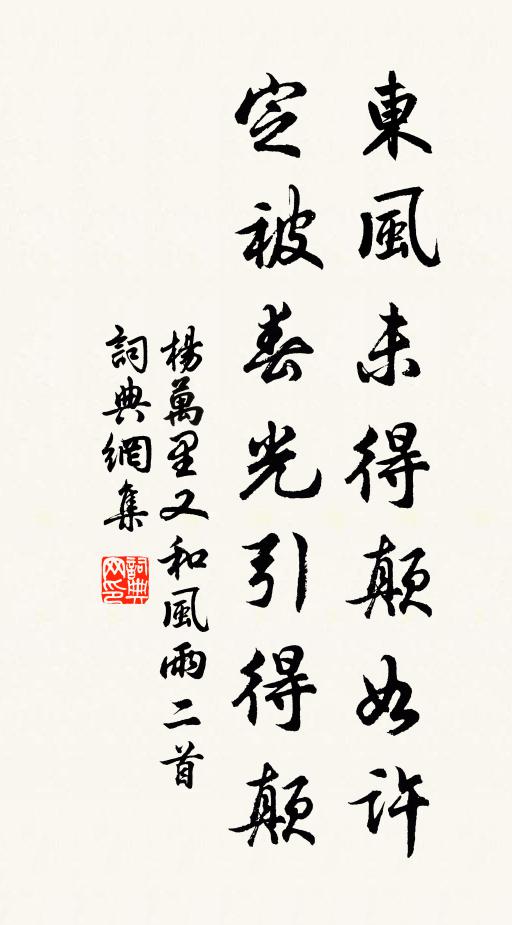 東風未得顛如許
定被春光引得顛
楊萬里又和風雨二首
詞典網集
詞典网印